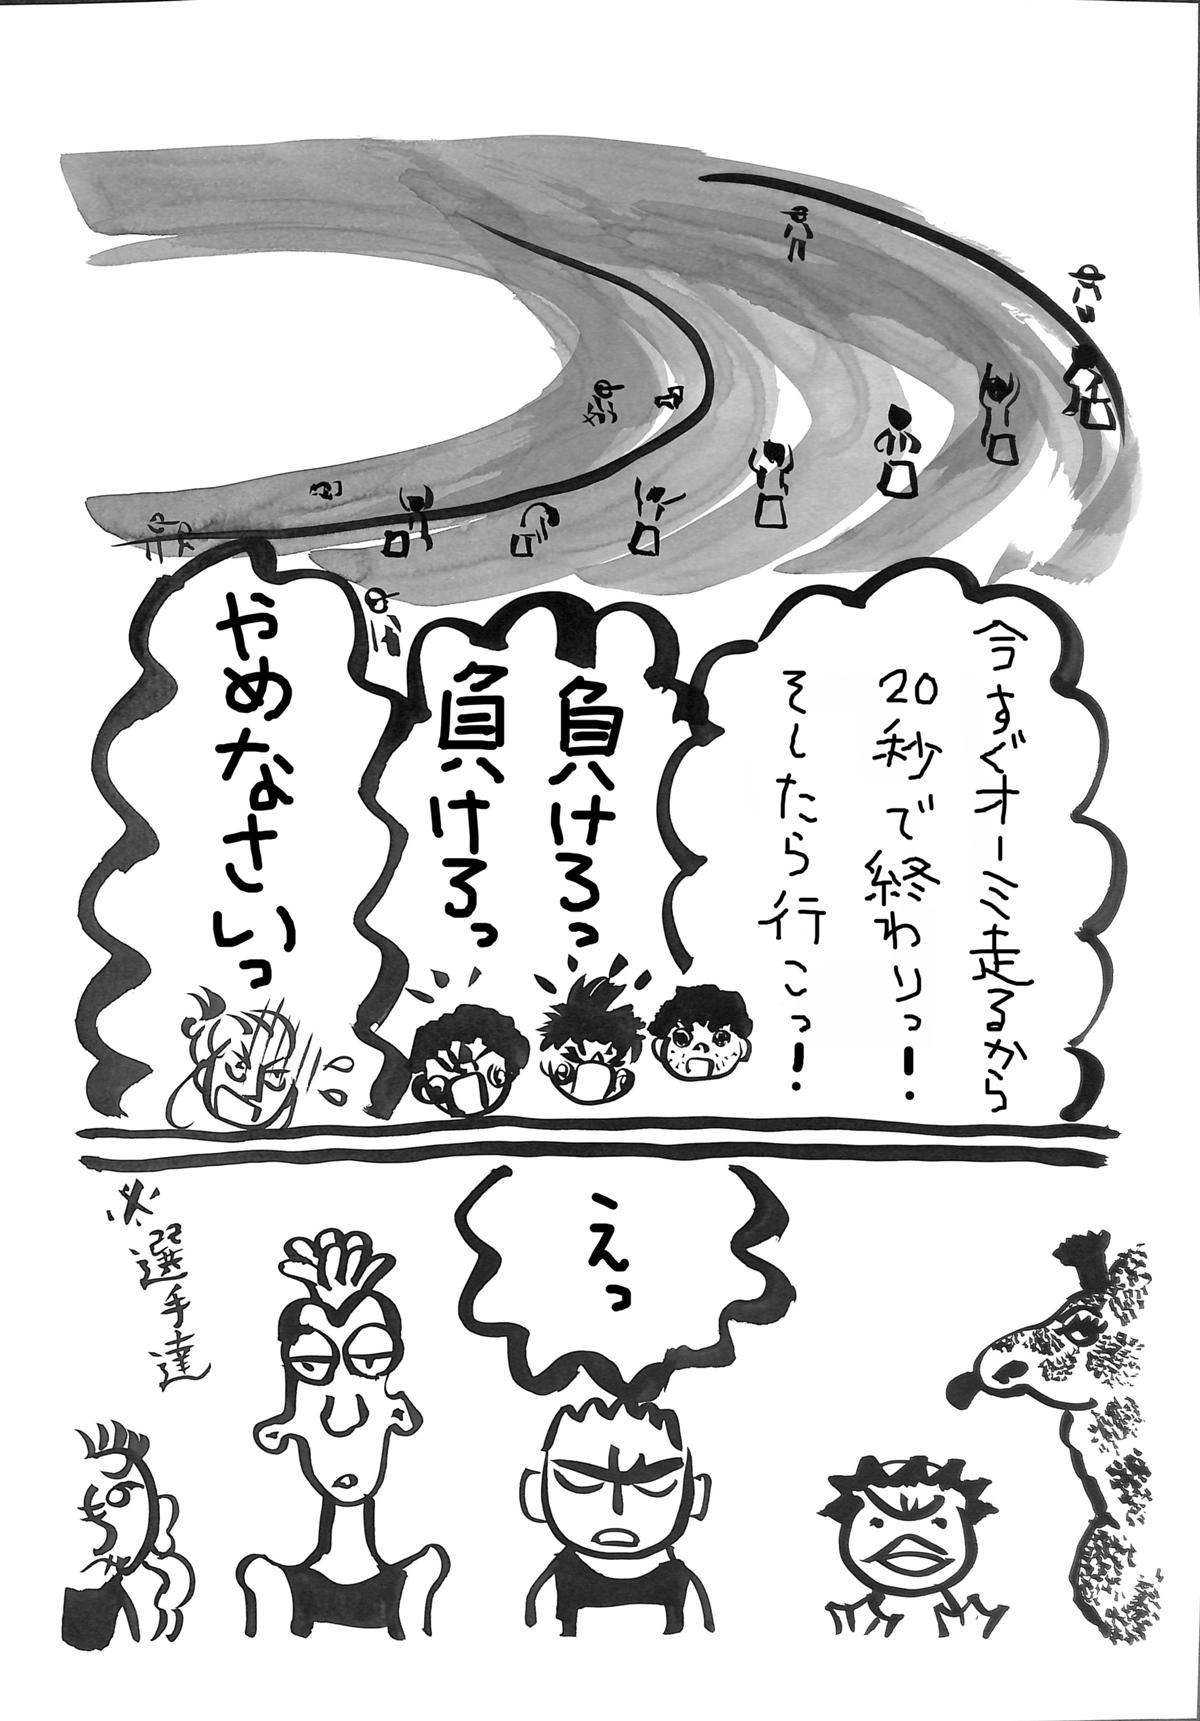 今すぐオーミ走るから
20秒で終わりっ!
そしたら行こっ!
負けろっ
負けろっ
やめなさいっ
えっ
※選手達